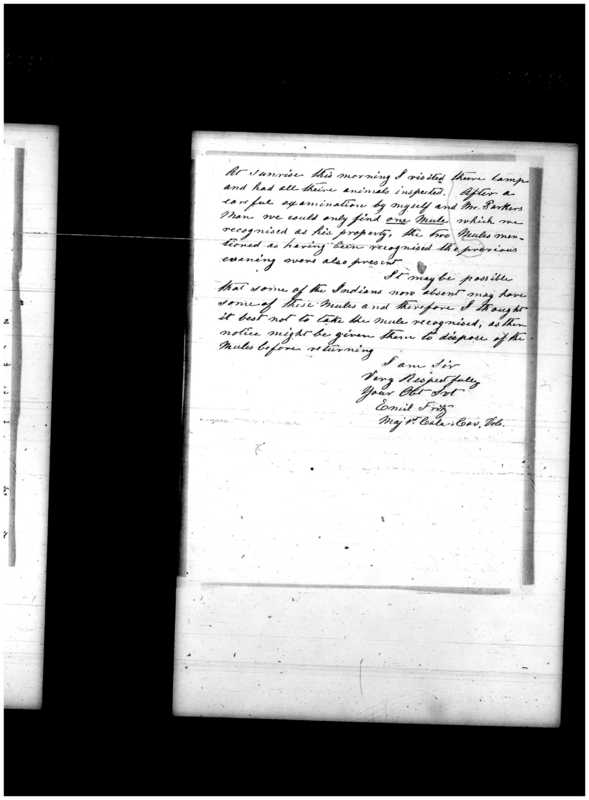 At sunrise this morning I visited there camp
and had all theire animals inspected. After a
careful examination by myself and Mr. Parkers
Man we could only find one Mule which we
recognised as his property, the two Mules men-
tioned as having been recognised the previous
evening wers also present
It may be possible
that some of the Indians now absent may have
some of these Mules and therefore I thought
it best not to take the mule recognised, as then
notice might be given them to dispose of the
Mules before returning
I am Sir
Very Respectfully
Your Obt Svt
Emil Fritz
Maj 1st Cala. Cav. Vols.